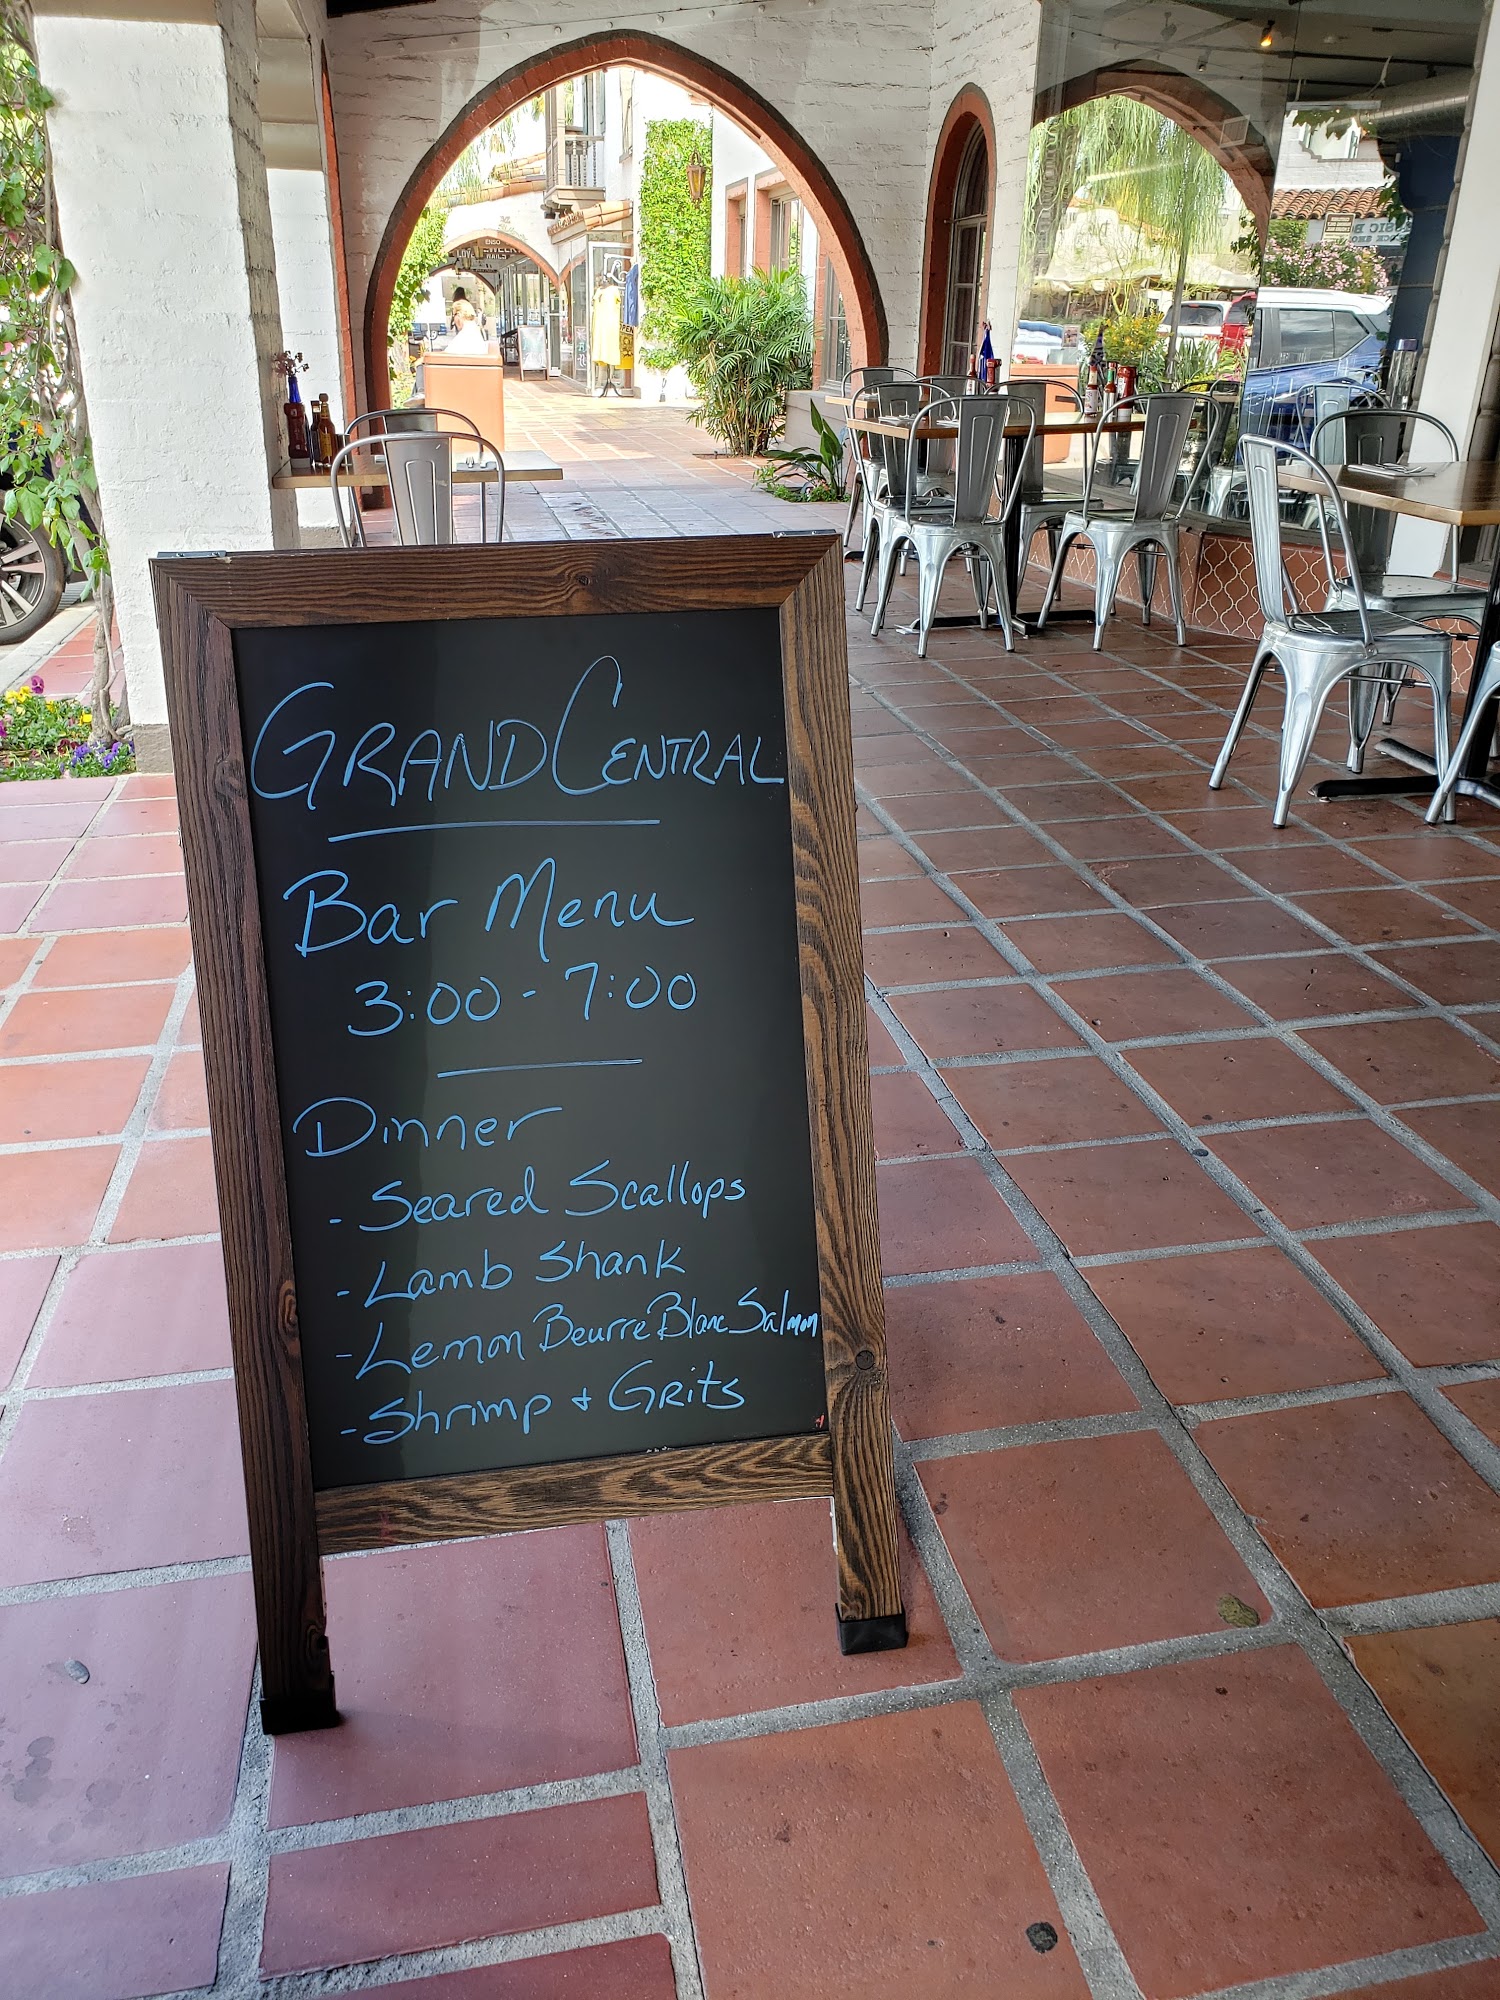 GRAND CENTRAL
Bar Menu
3:00 - 7:00
Dinner
- Seared Scallops
- Lamb Shank
- Lemon Beurre Blanc Salmon
- Shrimp + Grits